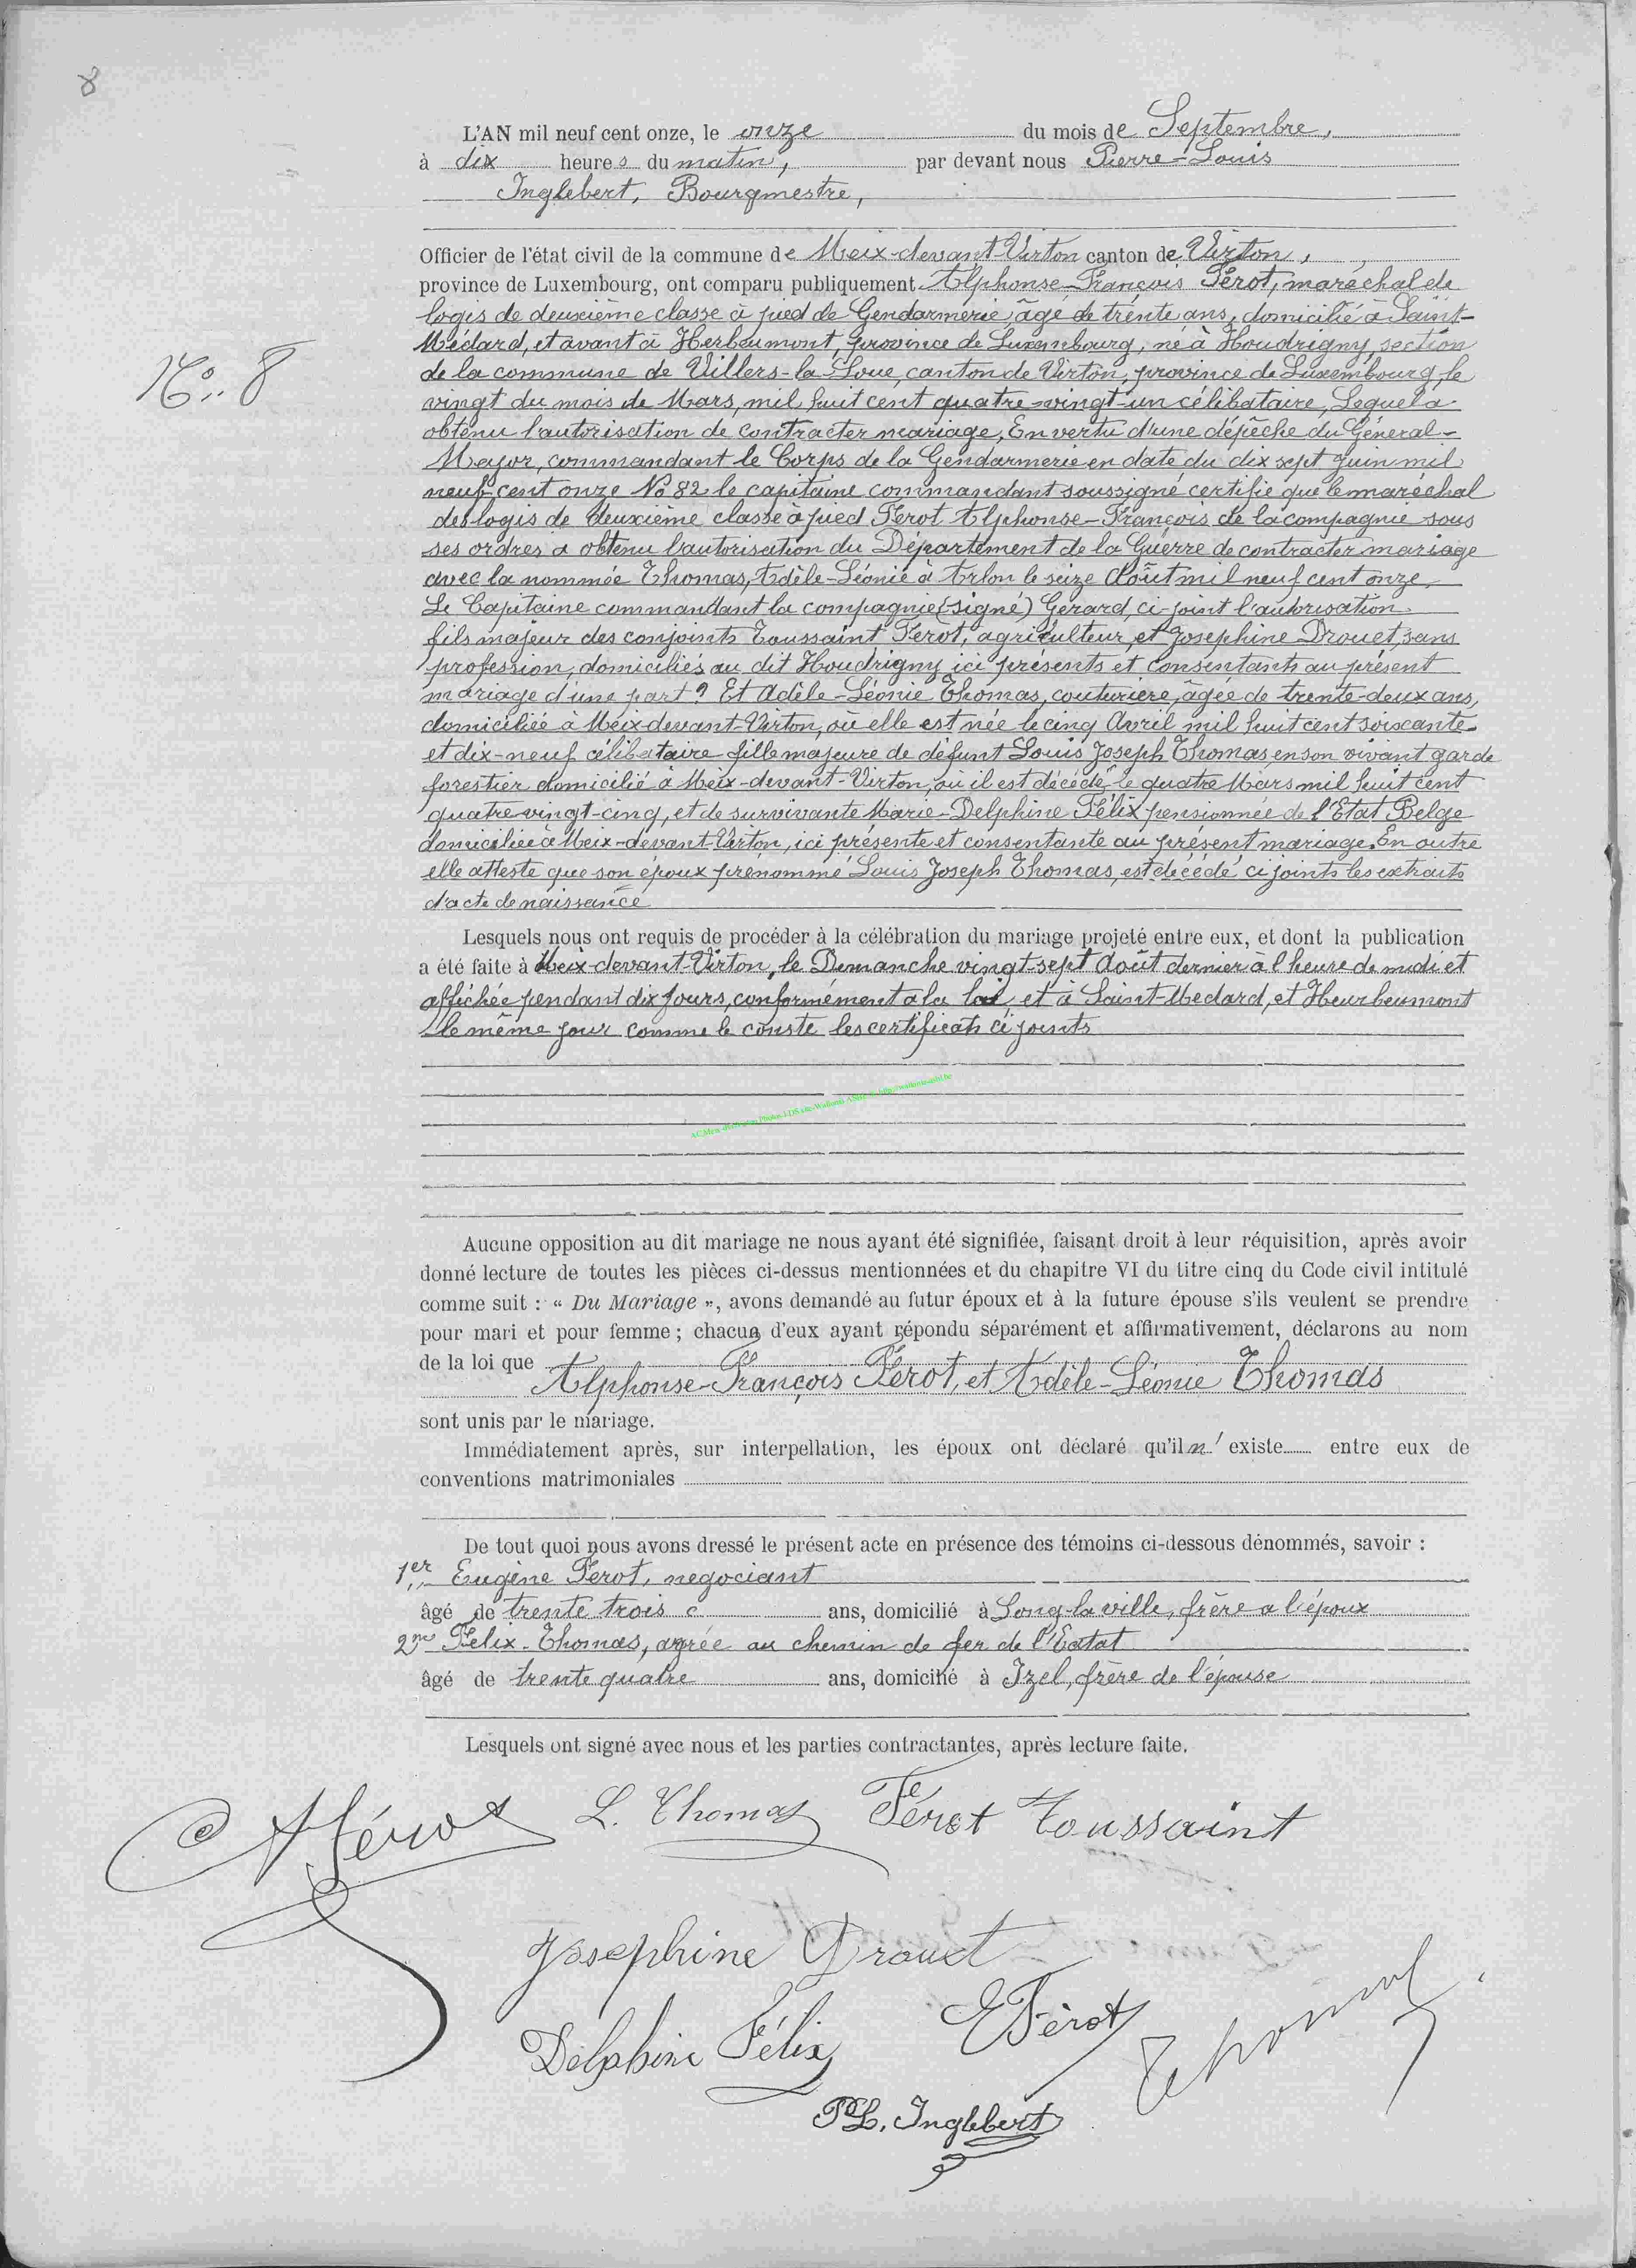 8
L'AN mil neuf cent onze, le onze du mois de Septembre,
à dix heures du matin, par devant nous Pierre-Louis
Inglebert, Bourgmestre,
Officier de l'état civil de la commune de Meix-devant-Virton canton de Virton,
province de Luxembourg, ont comparu publiquement Alphonse-François Férot, maréchal de
logis de deuxième classe à pied de Gendarmerie, âgé de trente ans, domicilié à Saint-
Médard, et avant à Herbeumont, province de Luxembourg, né à Houdrigny, section
N° 8
de la commune de Villers-la-Loue, canton de Virton, province de Luxembourg, le
vingt du mois de Mars, mil huit cent quatre-vingt-un célibataire, Lequel a
obtenu l'autorisation de contracter mariage, En vertu d'une dépêche du Général-
Major, commandant le Corps de la Gendarmerie en date du dix sept Juin mil
neuf cent onze No 82 le capitaine commandant soussigné certifie que le maréchal
des logis de deuxième classe à pied Férot Alphonse-François de la compagnie sous
ses ordres a obtenu l'autorisation du Département de la Guerre de contracter mariage
avec la nommée Thomas, Adèle-Léonie à Arlon le seize Août mil neuf cent onze,
Le Capitaine commandant la compagnie (signé) Gérard, ci-joint l'autorisation
fils majeur des conjoints Toussaint Ferot, agriculteur, et Josephine Drouet, sans
profession, domiciliés au dit Houdrigny ici présents et consentants au présent
mariage d'une part? Et Adèle-Léonie Thomas, couturière, âgée de trente-deux ans,
domiciliée à Meix-devant-Virton, où elle est née le cinq Avril mil huit cent soixante
et dix-neuf célibataire fille majeure de défunt Louis Joseph Thomas, en son vivant garde
forestier domicilié à Meix-devant-Virton, où il est décédé le quatre Mars mil huit cent
quatre-vingt-cinq, et de survivante Marie-Delphine Félix pensionnée de l'Etat Belge
domiciliée à Meix-devant-Virton, ici présente et consentante au présent mariage. En outre
elle atteste que son époux prénommé Louis Joseph Thomas, est décédé ci joints les extraits
d'acte de naissance
Lesquels nous ont requis de procéder à la célébration du mariage projeté entre eux, et dont la publication
a été faite à Meix-devant-Virton, le Dimanche vingt-sept Août dernier à l'heure de midi et
affichée pendant dix jours, conformément à la loi, et à Saint-Medard, et Heurbeumont
le même jour comme le conste les certificats ci joints
Aucune opposition au dit mariage ne nous ayant été signifiée, faisant droit à leur réquisition, après avoir
donné lecture de toutes les pièces ci-dessus mentionnées et du chapitre VI du titre cinq du Code civil intitulé
comme suit : « Du Mariage », avons demandé au futur époux et à la future épouse s'ils veulent se prendre
pour mari et pour femme ; chacun d'eux ayant répondu séparément et affirmativement, déclarons au nom
de la loi que Alphonse-François Férot, et Adèle-Léonie Thomas
sont unis par le mariage.
Immédiatement après, sur interpellation, les époux ont déclaré qu'il n' existe entre eux de
conventions matrimoniales
De tout quoi nous avons dressé le présent acte en présence des témoins ci-dessous dénommés, savoir :
1er Eugène Ferot, negociant
âgé de trente trois ans, domicilié à Long-la ville, frère a l'époux
2me Felix-Thomas, agrée au chemin de fer de l'Eatat
âgé de trente quatre ans, domicilié à Izel, frère de l'épouse
Lesquels ont signé avec nous et les parties contractantes, après lecture faite.
A Férot L. Thomas Férot Toussaint
Josephine Drouet
Delphine Félix E Férot Thomas
PL. Inglebert